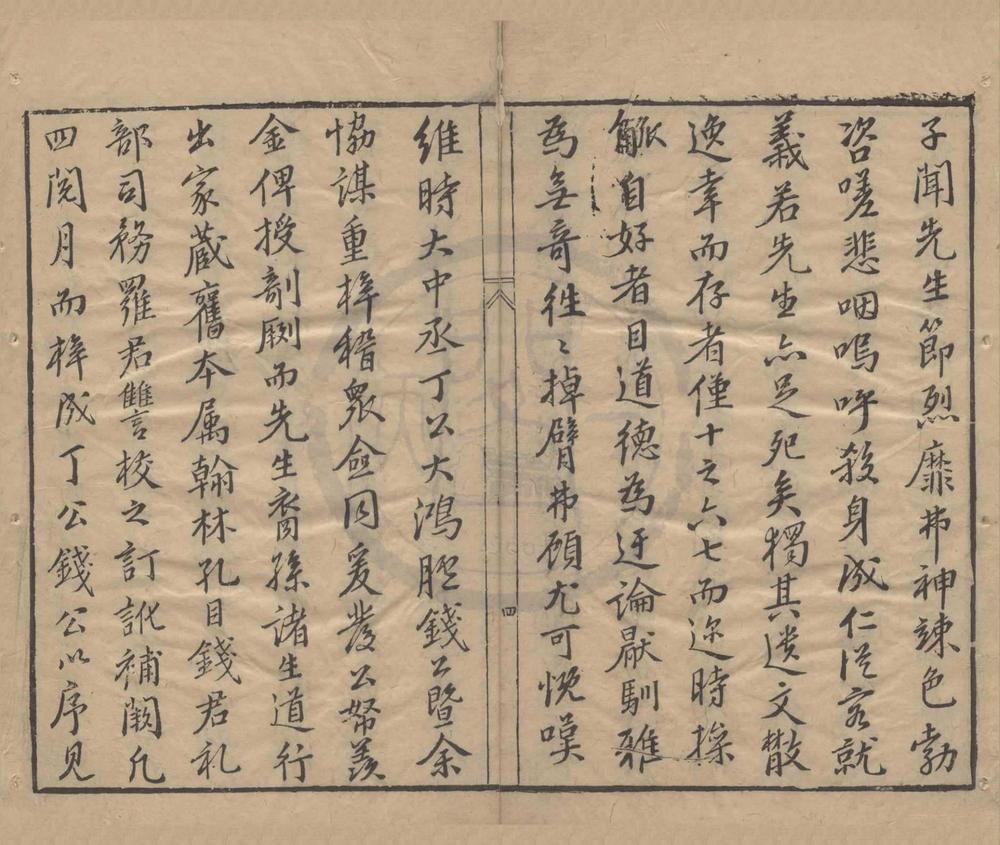 子聞先生節烈靡弗神竦色勃
咨嗟悲咽嗚呼殺身成仁從容就
義若先生亦足死矣獨其遺文散
逸幸而存者僅十之六七而邇時操
觚自好者目道德為迂論厭馴雅
為無奇徃〻掉臂弗顧尤可悅嘆
維時大中丞丁公大鴻臚錢公暨余
恊謀重梓稽眾僉同爰發公帑羨
金俾授剞劂而先生裔孫諸生道行
出家蔵舊本属翰林孔目錢君礼
部司務羅君讐校之訂訛補闕凡
四閱月而梓成丁公錢公以序見
四